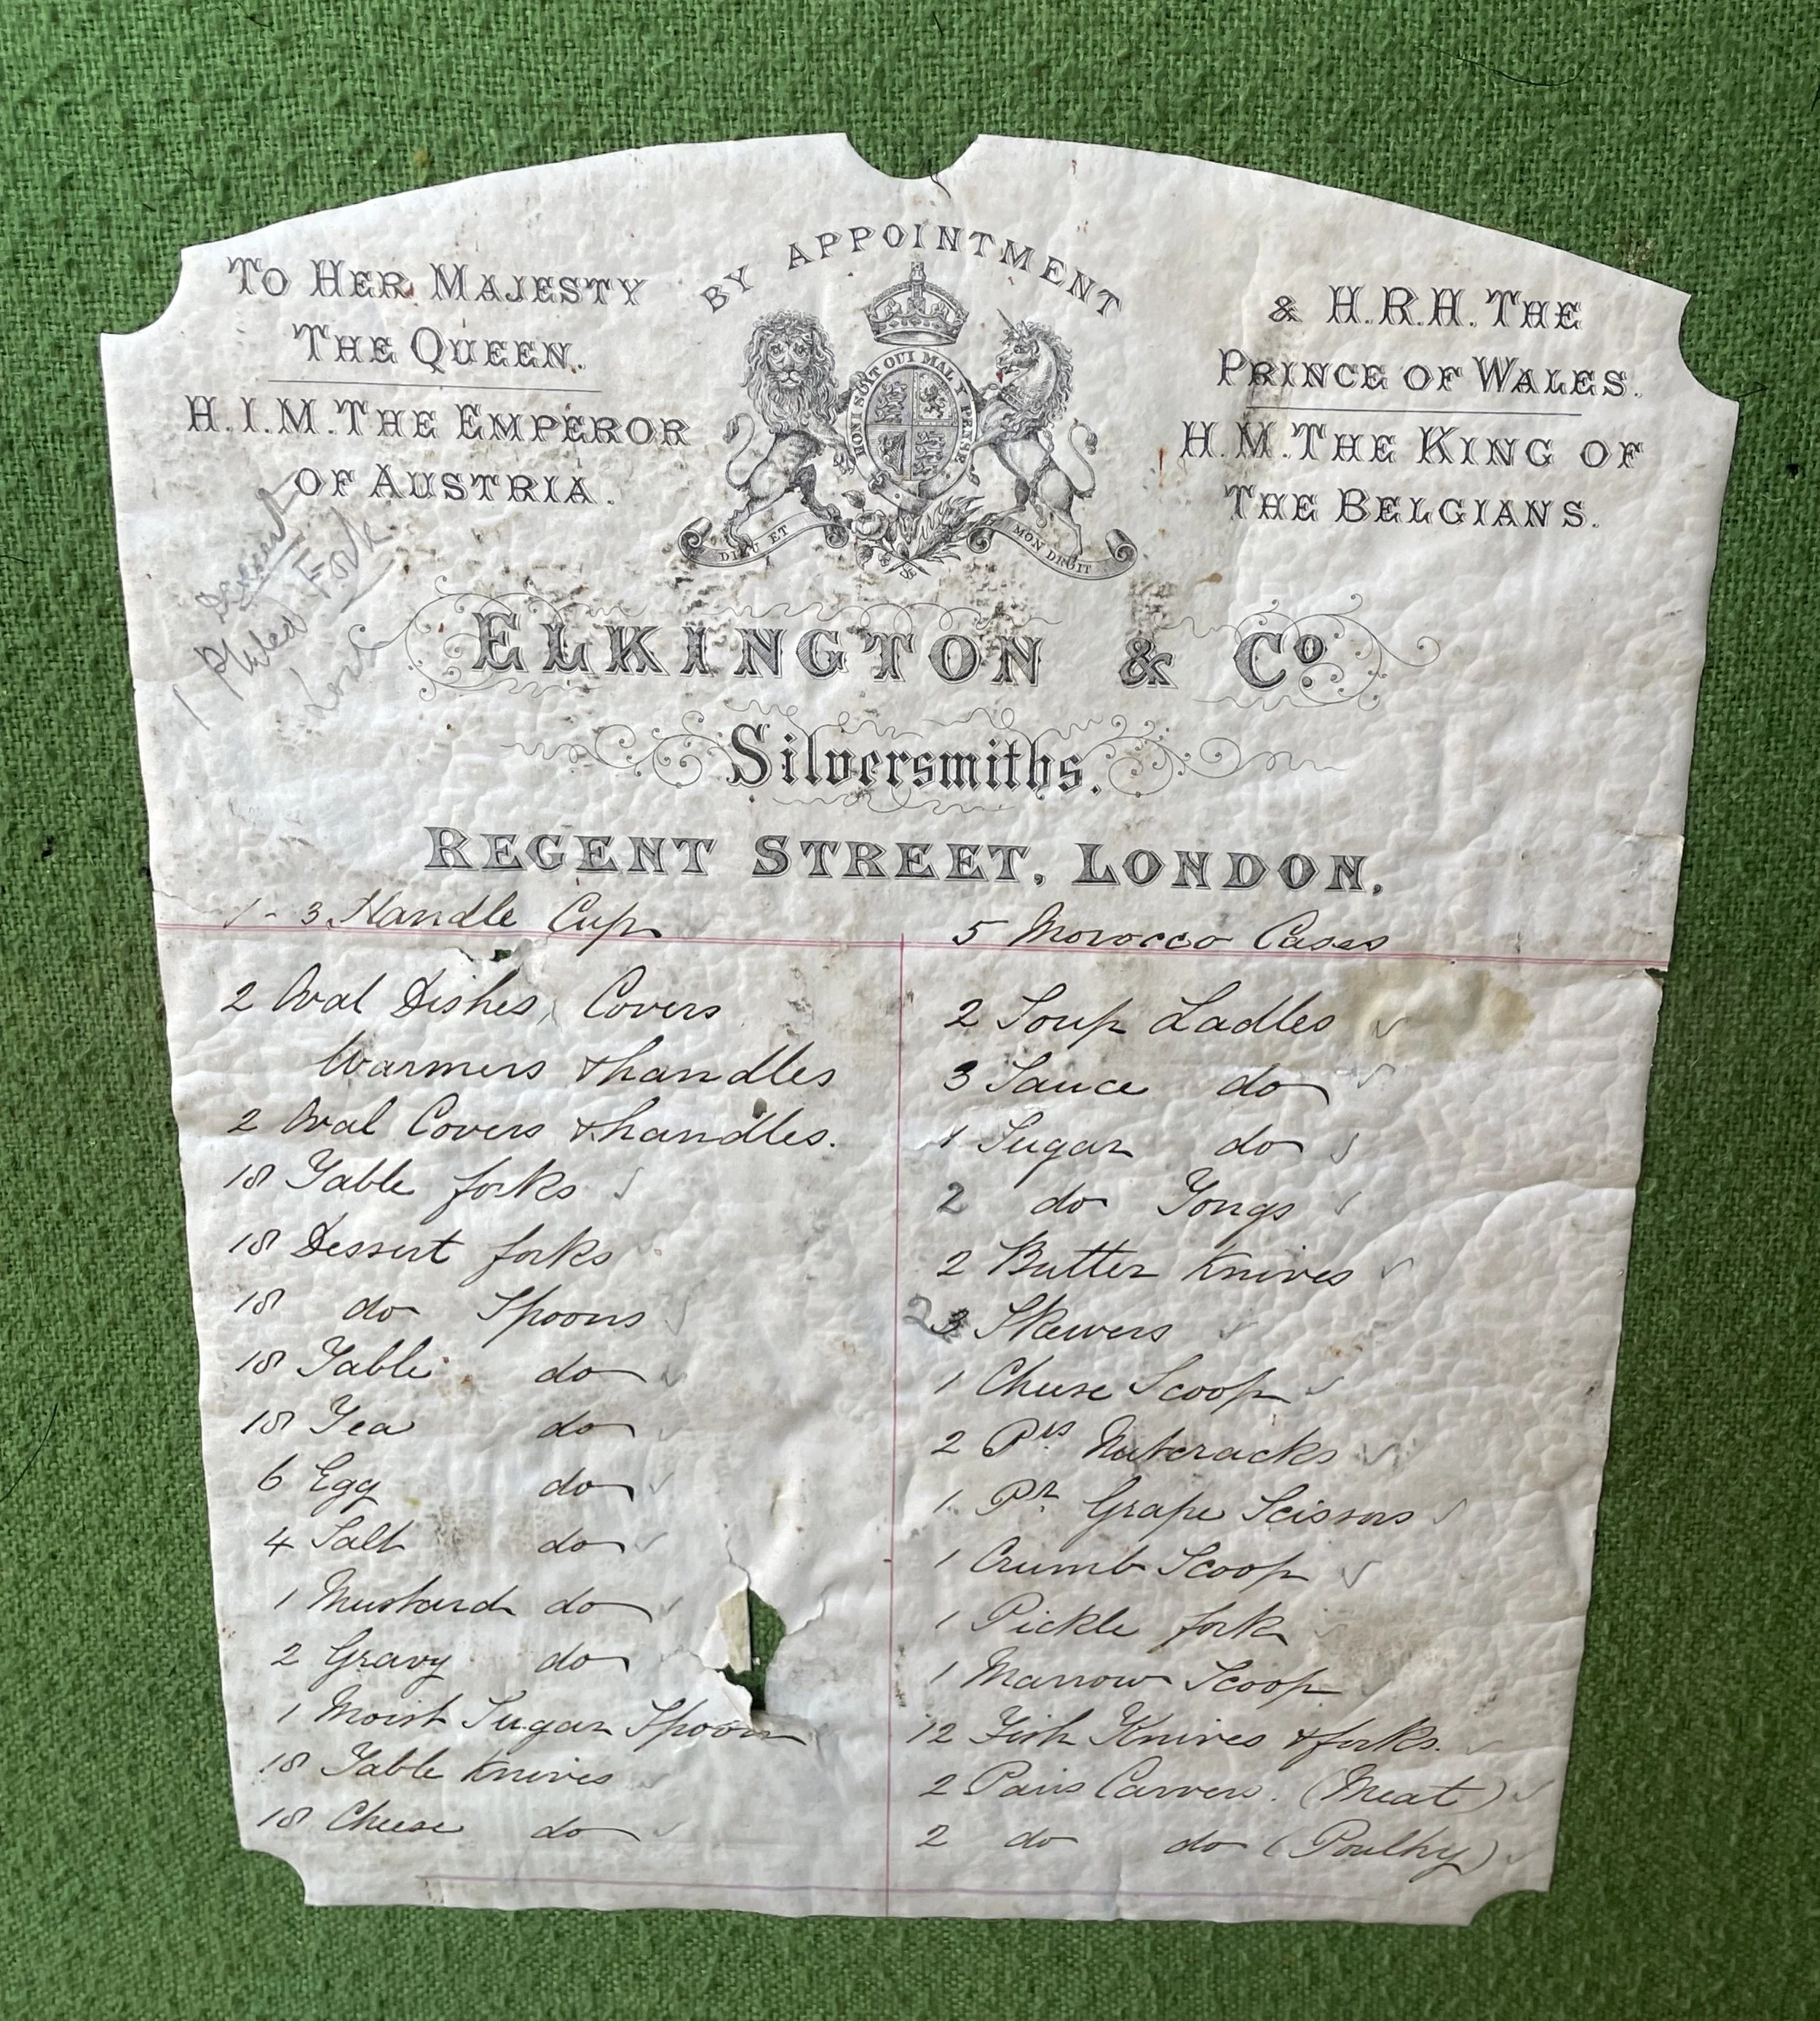 BY APPOINTMENT
TO HER MAJESTY
THE QUEEN.
H.I.M. THE EMPEROR
OF AUSTRIA.
& H.R.H. THE
PRINCE OF WALES.
H.M. THE KING OF
THE BELGIANS.
HONI SOIT QUI MAL Y PENSE
DIEU ET MON DROIT
Dessert
1 Plated Fork
Lost
ELKINGTON & Co.
Silversmiths.
REGENT STREET, LONDON.
1 - 3 Handle Cup
2 Oval Dishes, Covers
Warmers & handles
2 Oval Covers & handles.
18 Table forks
18 Dessert forks
18 do Spoons
18 Table do
18 Tea do
6 Egg do
4 Salt do
1 Mustard do
2 Gravy do
1 Moist Sugar Spoon
18 Table Knives
18 Cheese do
5 Morocco Cases
2 Soup Ladles
3 Sauce do
1 Sugar do
2 do Tongs
2 Butter Knives
2 3 Skewers
1 Cheese Scoop
2 Prs Nutcracks
1 Pr Grape Scissors
1 Crumb Scoop
1 Pickle fork
1 Marrow Scoop
12 Fish Knives & forks.
2 Pairs Carvers. (Meat)
2 do do (Poultry)